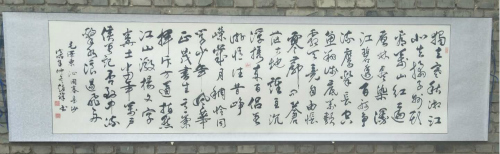 獨立寒秋湘江
北去橘子洲頭
看萬山紅遍
層林盡染漫
江碧透百舸争
流鷹擊長空
魚翔淺底萬類
霜天競自由悵
寥廓問蒼
茫大地誰主沉
浮攜來百侣曾
游憶往昔崢
嶸歲月稠恰同
學少年風華
正茂書生意氣
揮斥方遒指點
江山激揚文字
糞土當年萬户
侯曾記否到中流
擊水浪遏飛舟
毛澤東沁園春長沙